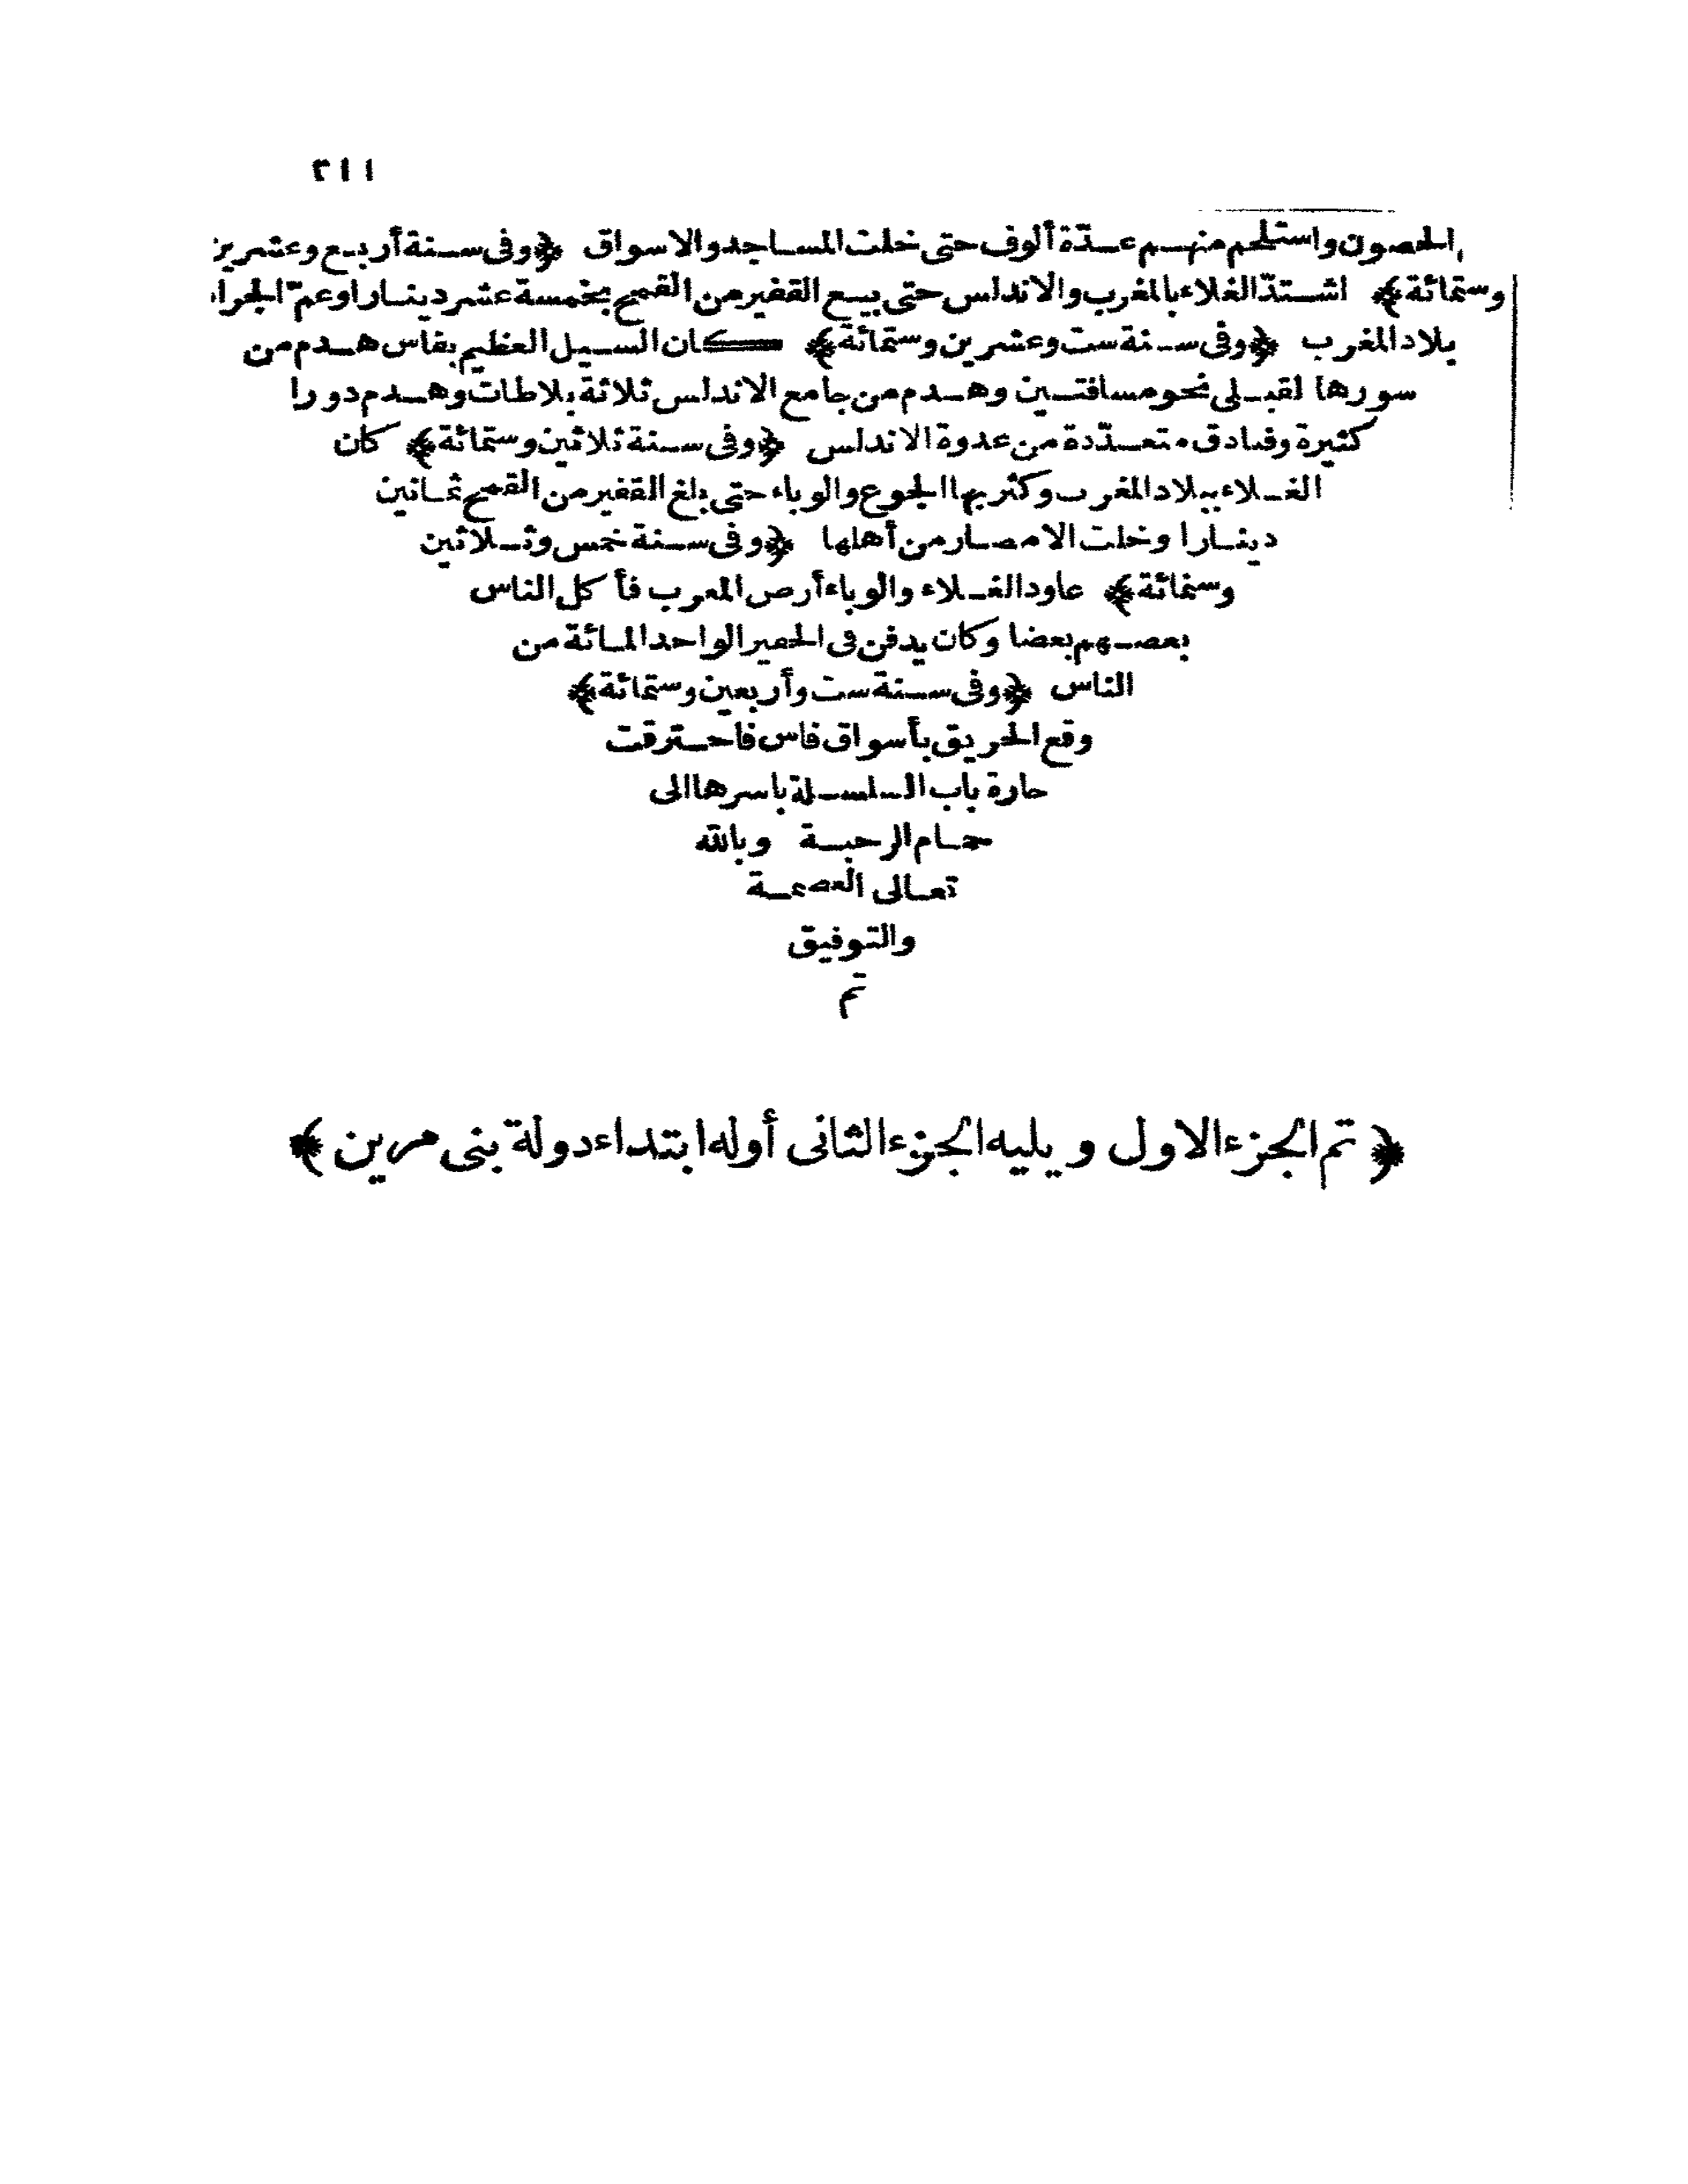 ٢١١
الحصون واستلحم منهم عدّة ألوف حتى خلت المساجد والاسواق ﴿وفى سنة أربع وعشرين
وستمائة﴾ اشتدّ الغلاء بالمغرب والاندلس حتى بيع القفيز من القمح بخمسة عشر دينارا وعمّ الجراد
بلاد المغرب ﴿وفى سنة ست وعشرين وستمائة﴾ كان السيل العظيم بفاس هدم من
سورها لقبلى نحو مسافتين وهدم من جامع الاندلس ثلاثة بلاطات وهدم دورا
كثيرة وفنادق متعدّدة من عدوة الاندلس ﴿وفى سنة ثلاثين وستمائة﴾ كان
الغلاء ببلاد المغرب وكثر بها الجوع والوباء حتى بلغ القفيز من القمح ثمانين
دينارا وخلت الامصار من أهلها ﴿وفى سنة خمس وثلاثين
وستمائة﴾ عاود الغلاء والوباء أرض المغرب فأكل الناس
بعضهم بعضا وكان يدفن فى الحفير الواحد المائة من
الناس ﴿وفى سنة ست وأربعين وستمائة﴾
وقع الحريق بأسواق فاس فاحترقت
حارة باب السلسلة باسرها الى
حمام الرحبة وبالله
تعالى العصمة
والتوفيق
تم
﴿ تم الجزء الاول ويليه الجزء الثانى أوله ابتداء دولة بنى مرين ﴾